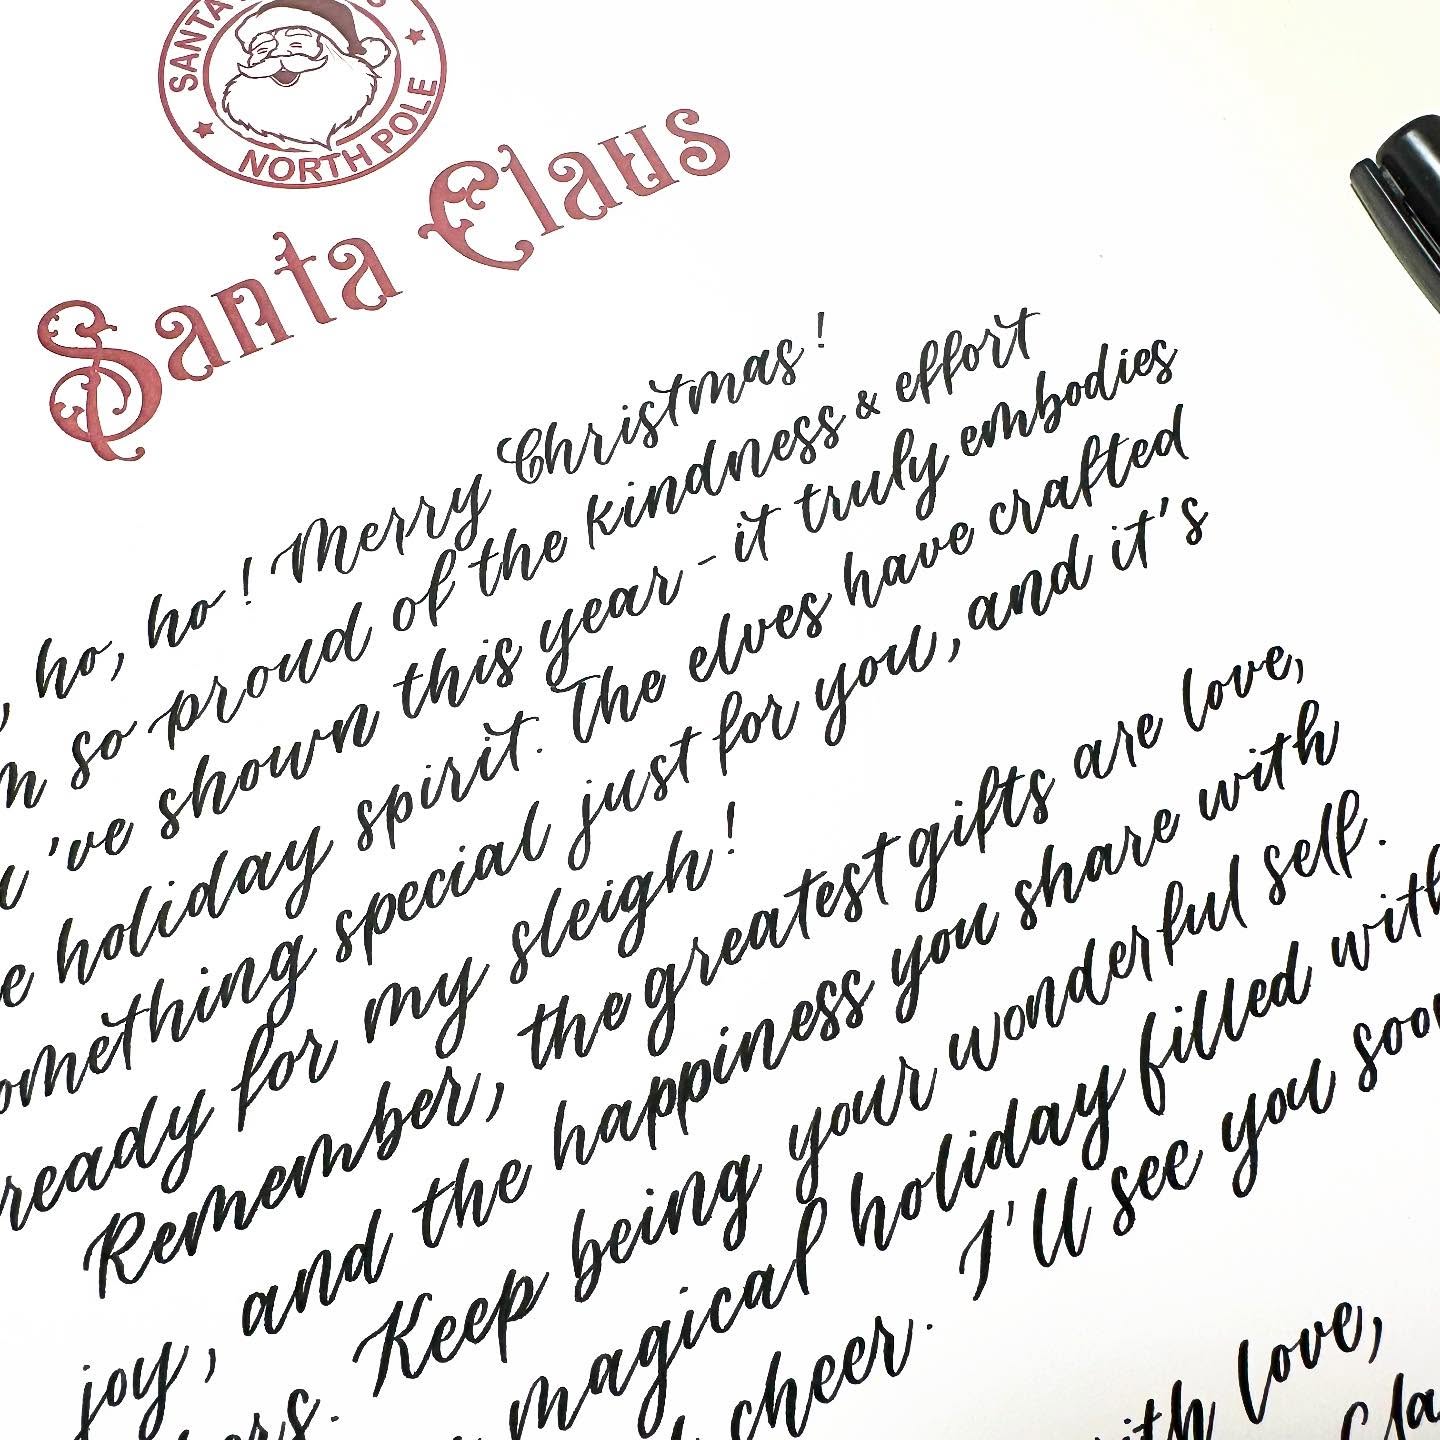 SANTA
NORTH POLE
Santa Claus
ho, ho! Merry Christmas!
so proud of the kindness & effort
've shown this year - it truly embodies
holiday spirit. The elves have crafted
something special just for you, and it's
ready for my sleigh!
Remember, the greatest gifts are love,
joy, and the happiness you share with
Keep being your wonderful self.
magical holiday filled with
cheer. I'll see you soon
with love,